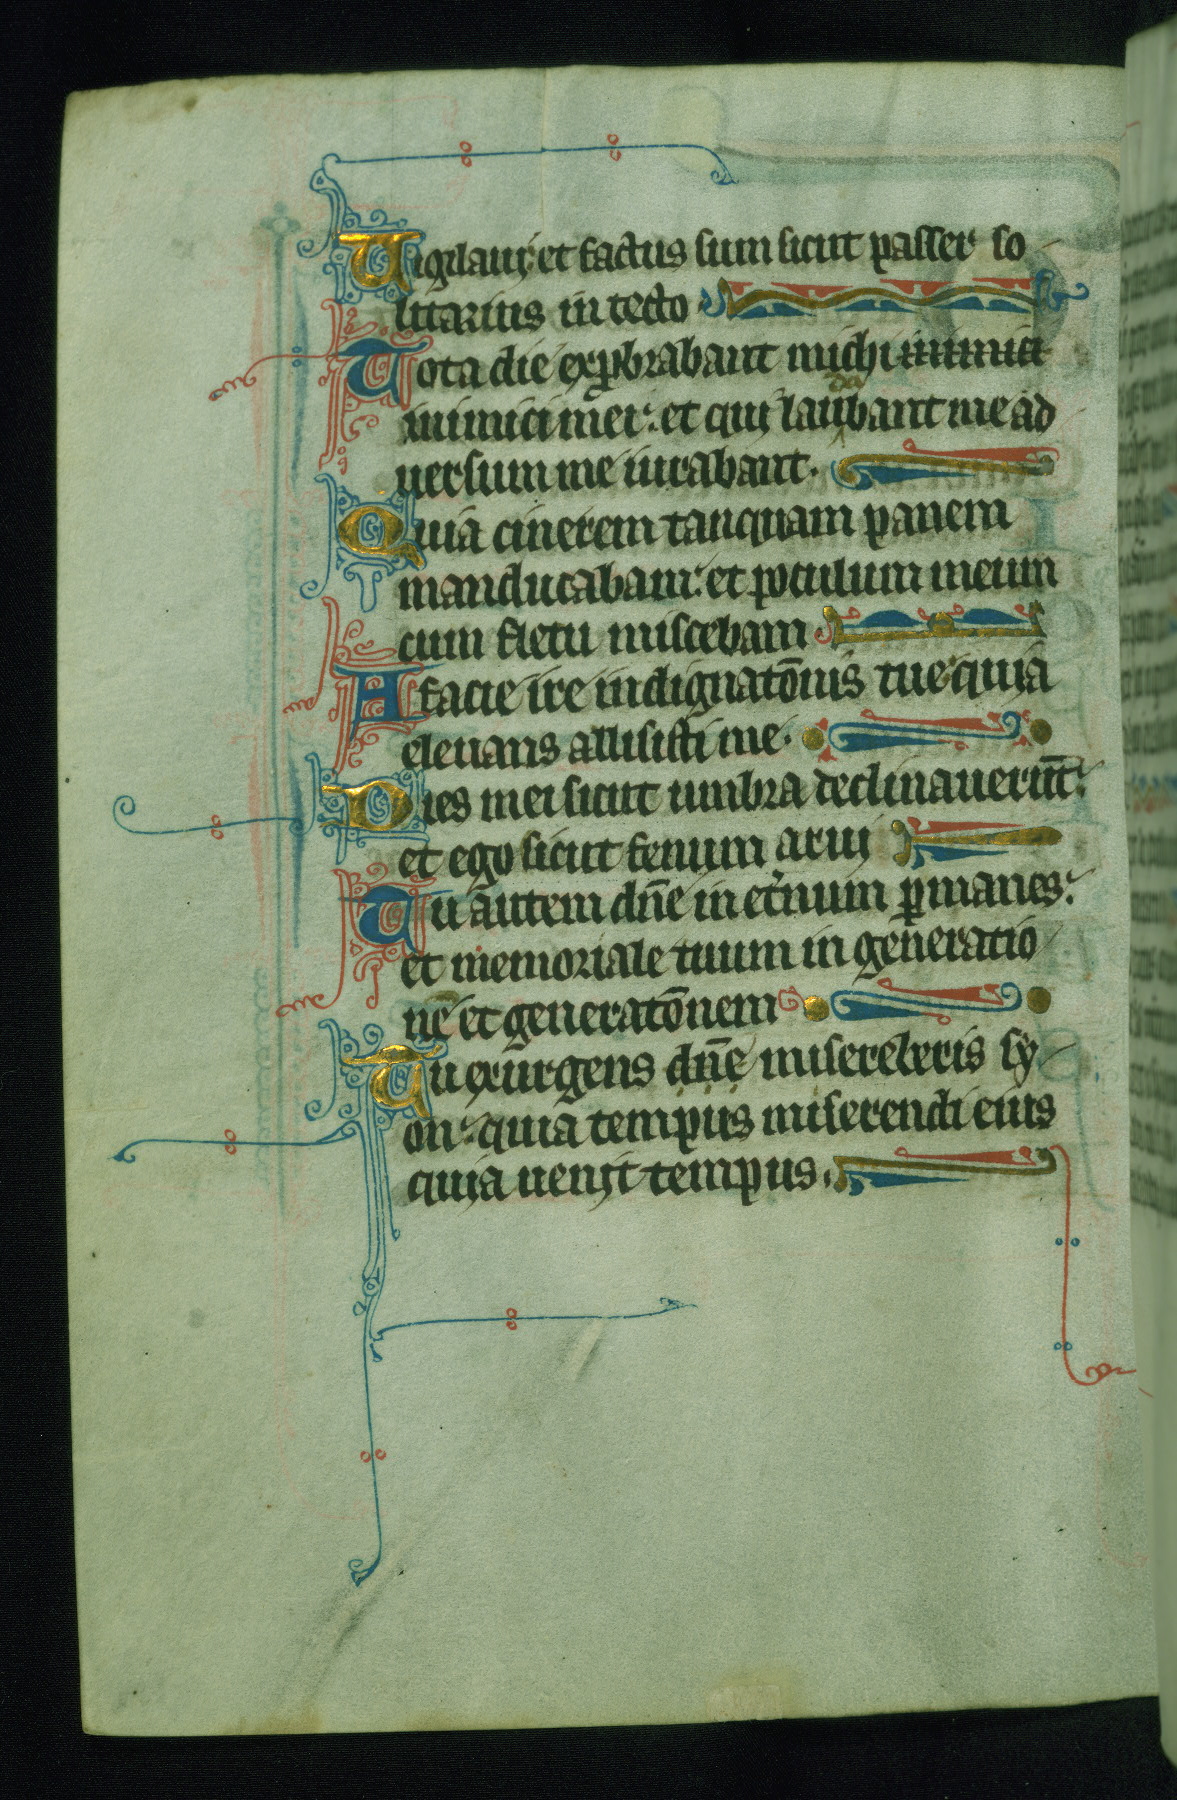 Uigilaui et factus sum sicut passer so
litarius in tecto
Tota die exp̱brabant michi inimici
inimici mei: et qui laudabant me ad
uersum me iurabant.
Quia cinerem tanquam panem
manducabam: et poculum meum
cum fletu miscebam
A facie ire indignatōnis tue quia
eleuans allisisti me.
Dies mei sicut umbra declinauerūt:
et ego sicut fenum arui
Tu autem dn̄e in et̓num p̱manes:
et memoriale tuum in generatio
nē et generatōnem
Tu exurgens dn̄e misereberis sy
on: quia tempus miserendi eius
quia uenit tempus.